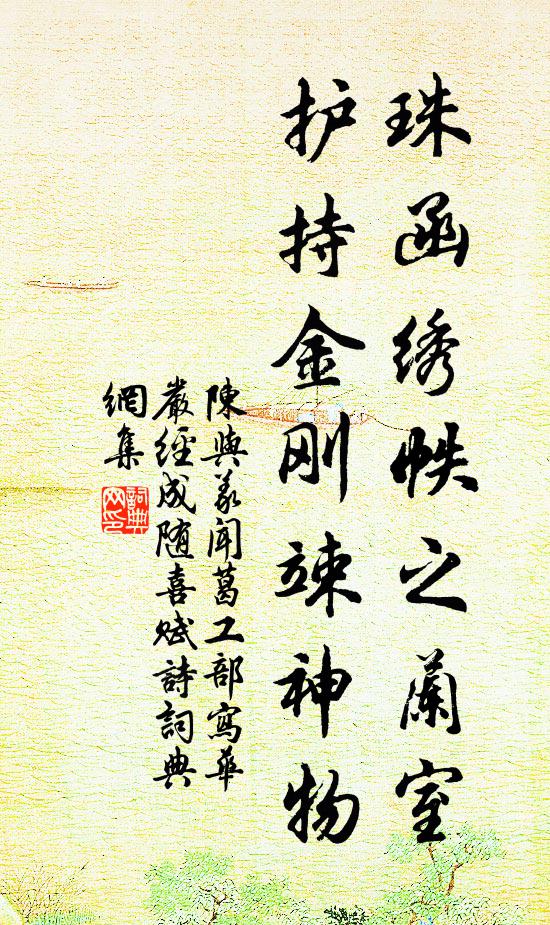 珠函绣帙之蘭室
护持金刚竦神物
陳與义聞葛工部寫華
嚴經成随喜赋詩詞典
網集
詞典
网印